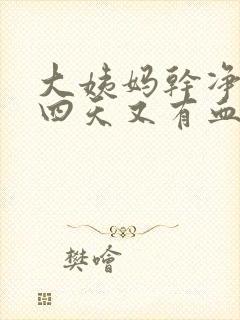 大姨妈幹净
四天又有血
樊噲